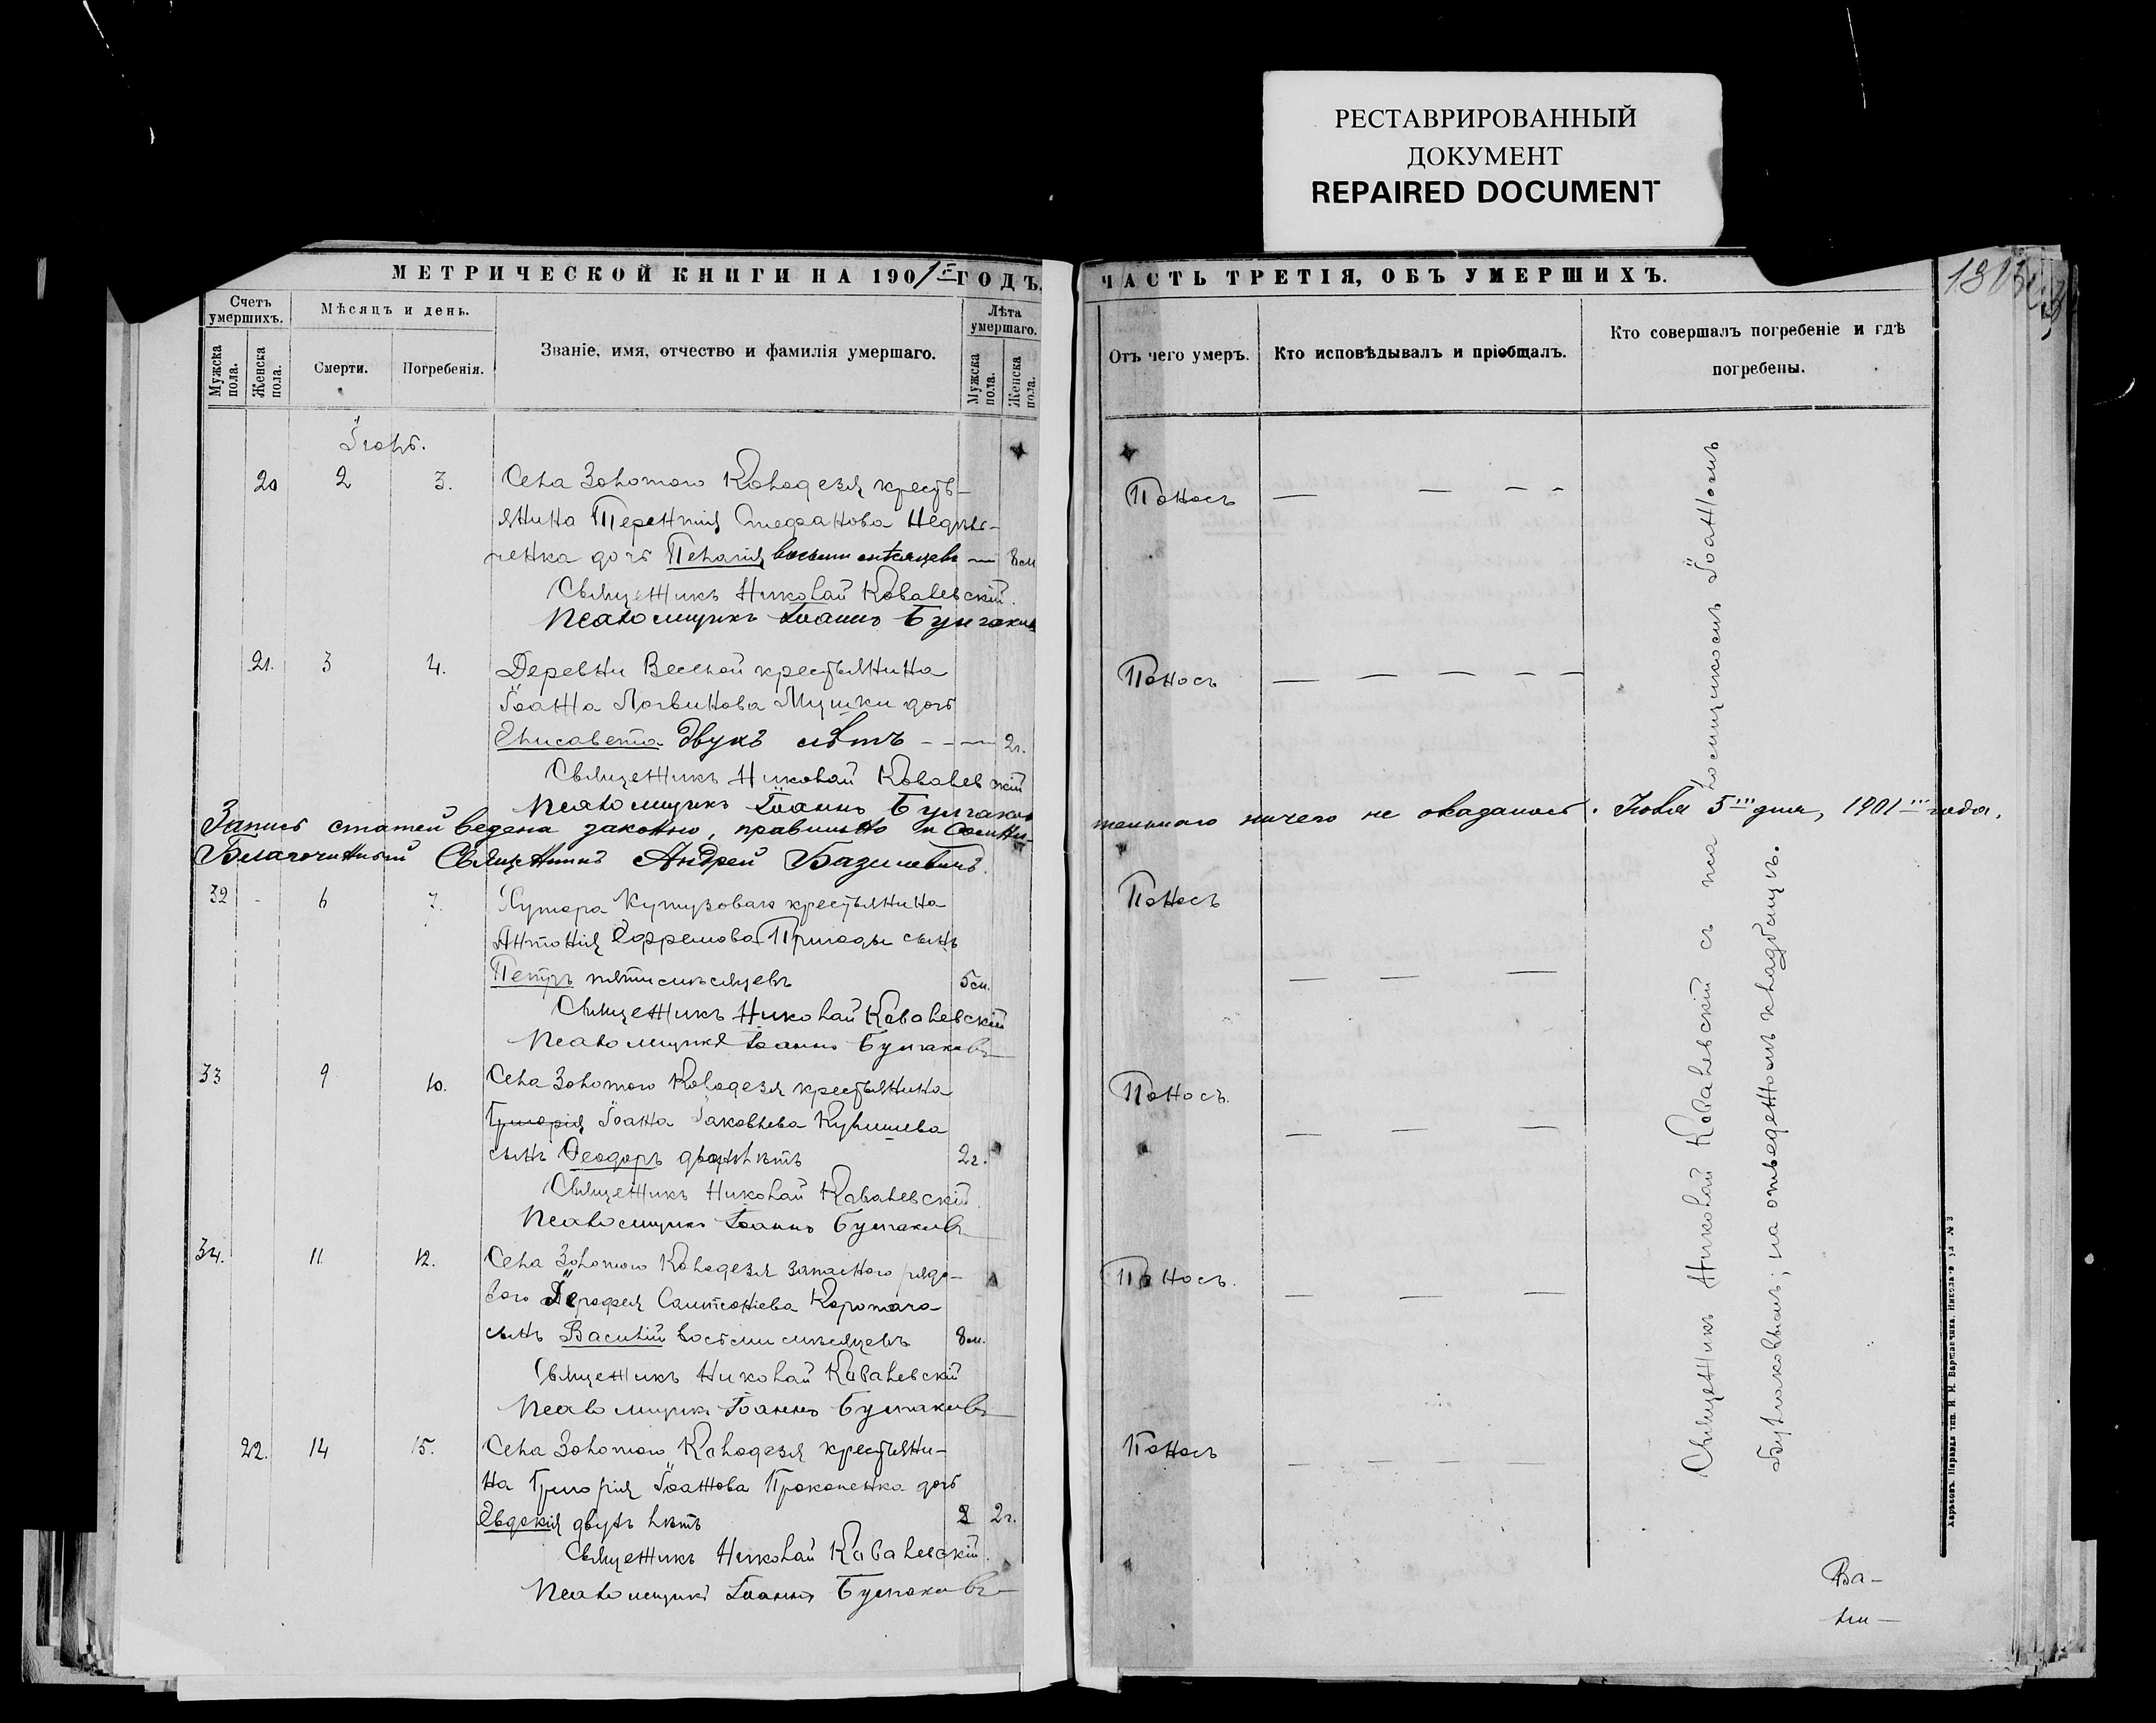 РЕСТАВРИРОВАННЫЙ
ДОКУМЕНТ
REPAIRED DOCUMENT
МЕТРИЧЕСКОЙ КНИГИ НА 1901 ГОДЪ.
ЧАСТЬ ТРЕТІЯ, ОБЪ УМЕРШИХЪ.
Счетъ умершихъ.
Мужска пола.
Женска пола.
Мѣсяцъ и день.
Смерти.
Погребенія.
Званіе, имя, отчество и фамилія умершаго.
Лѣта умершаго.
Мужска пола.
Женска пола.
Отъ чего умеръ.
Кто исповѣдывалъ и пріобщалъ.
Кто совершалъ погребеніе и гдѣ
погребены.
Іюль.
20 2 3. Села Золотого Колодезя кресть-
Поносъ
янина Терентія Стефанова
ченка дочь Пелагія восьми мѣсяцевъ — 8 м
Священникъ Николай Ковалевскій.
Псаломщикъ Іоаннъ Булгаковъ
21. 3 4. Деревни Веселой крестьянина
Поносъ
Іоанна Логвинова Мушки дочь
Елисавета двухъ лѣтъ - - — 2 г.
Священникъ Николай Ковалевскій
Псаломщикъ Іоаннъ Булгаковъ
Запись статей ведена законно, правильно и сомни-
тельнаго ничего не оказалось. Іюля 5 дня, 1901 года.
Благочинный Священникъ Андрей Базилевичъ.
32 - 6 7. Хутора Кутузоваго крестьянина
Поносъ
Антонія Ефремова Пригоды сынъ
Петръ пяти мѣсяцевъ 5 м.
Священникъ Николай Ковалевскій
Псаломщикъ Іоаннъ Булгаковъ
33 9 10. Села Золотого Колодезя крестьянина
Поносъ.
Григорія Іоана Іаковлева
сынъ Ѳеодоръ лѣтъ 2 г.
Священникъ Николай Ковалевскій
Псаломщикъ Іоаннъ Булгаковъ
34. 11 12. Села Золотого Колодезя запасного рядо-
Поносъ.
вого Коротаго
сынъ Василій восьми мѣсяцевъ 8 м.
Священникъ Николай Ковалевскій
Псаломщикъ Іоаннъ Булгаковъ
22. 14 15. Села Золотого Колодезя крестьяни-
Поносъ
на Григорія Іоаннова Прокопенка дочь
Евдокія двухъ лѣтъ 2 2 г.
Священникъ Николай Ковалевскій.
Псаломщикъ Іоаннъ Булгаковъ
Священникъ Николай Ковалевскій съ псаломщикомъ Іоанномъ
Булгаковымъ; на отведенномъ кладбищѣ.